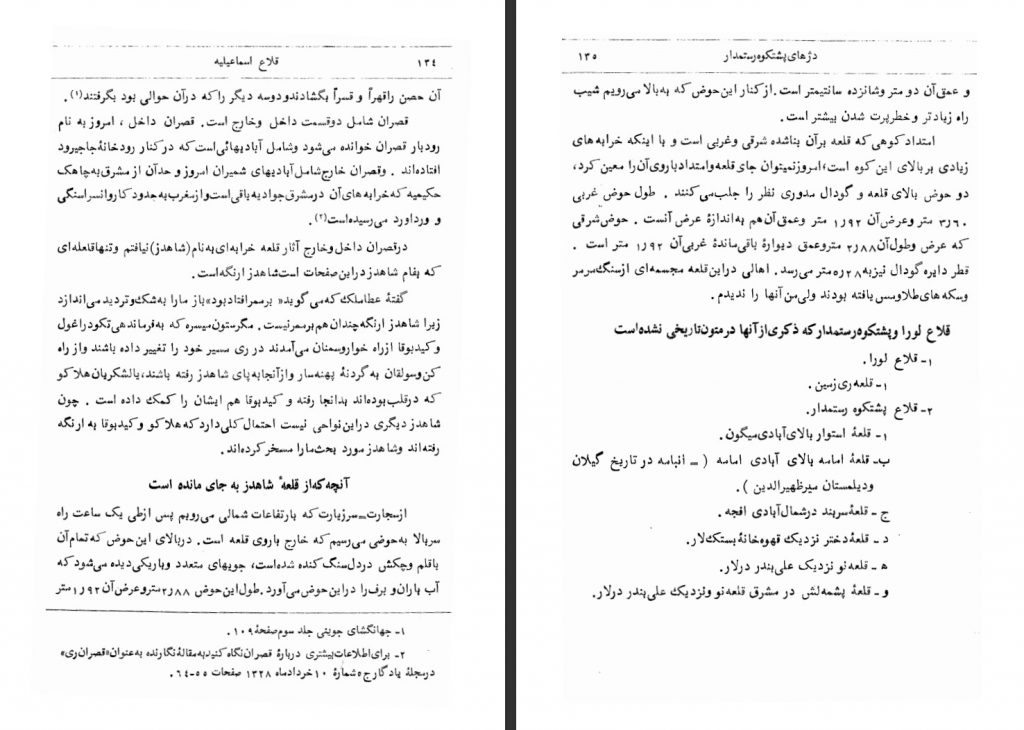 ۱۳٤ قلاع اسماعیلیه
آن حصن راقهراً و قسراً بگشادندودوسه دیگر را که درآن حوالی بود بگرفتند(۱).
قصران شامل دوقسمت داخل وخارج است. قصران داخل ، امروز به نام
رودبار قصران خوانده می‌شود وشامل آبادیهائی است که در کنار رودخانهٔ جاجیرود
افتاده‌اند . وقصران خارج شامل آبادیهای شمیران امروز و حدآن از مشرق به چاهک
حکیمیه که خرابه‌های آن درمشرق جوادیه باقی است و از مغرب به حدود کاروانسر اسنگی
و ورداورد می‌رسیده است(۲).
درقصران داخل وخارج آثار قلعه خرابه‌ای به نام (شاهدز) نیافتم وتنها قلعه‌ای
که بنام شاهدز دراین صفحات است شاهدز ارنگه است.
گفتهٔ عطاملک که می گوید «برممر افتاد بود» باز مارا به شک و تردید می‌اندازد
زیرا شاهدز ارنگه چندان هم برممر نیست. مگر ستون میسره که به فرماندهی تکودراغول
و کیدبوقا از راه خواروسمنان می‌آمدند در ری مسیر خود را تغییر داده باشند واز راه
کن وسولقان به گردنهٔ پهنه‌سار وازآنجا به پای شاهدز رفته باشند، یا لشکریان هلاکو
که درقلب بوده‌اند بدانجا رفته و کیدبوقا هم ایشان را کمک داده است . چون
شاهدز دیگری دراین نواحی نیست احتمال کلی دارد که هلاکو و کیدبوقا به ارنگه
رفته‌اند وشاهدز مورد بحث مارا مسخر کرده‌اند.
آنچه که از قلعهٔ شاهدز به جای مانده است
ازسجارت=سرزیارت که بارتفاعات شمالی می‌رویم پس ازطی یک ساعت راه
سربالا به حوضی می‌رسیم که خارج باروی قلعه است. دربالای این حوض که تمام آن
باقلم وچکش دردل سنگ کنده شده است، جویهای متعدد وباریکی دیده می‌شود که
آب باران و برف را دراین حوض می‌آورد. طول این حوض ۲٫۸۸ متر وعرض آن ۱٫۹۲ متر
۱ـ جهانگشای جوینی جلد سوم صفحهٔ ۱۰۹.
۲ـ برای اطلاعات بیشتری دربارهٔ قصران نگاه کنید به مقالهٔ نگارنده به عنوان «قصران ری»
درمجلهٔ یادگار ج ۵ شمارهٔ ۱۰ خردادماه ۱۳۲۸ صفحات ۵۵-۶۴.
دژهای پشتکوه رستمدار ۱۳۵
و عمق آن دو متر و شانزده سانتیمتر است. از کنار این حوض که به بالا می‌رویم شیب
راه زیادتر و خطرپرت شدن بیشتر است.
امتداد کوهی که قلعه برآن بناشده شرقی وغربی است و با اینکه خرابه‌های
زیادی بر بالای این کوه است، امروز نمیتوان جای قلعه وامتداد باروی آن را معین کرد،
دو حوض بالای قلعه و گودال مدوری نظر را جلب می‌کنند . طول حوض غربی
۳٫۰۶ متر وعرض آن ۱٫۹۲ متر وعمق آن هم به اندازهٔ عرض آنست . حوض شرقی
که عرض وطول آن ۲٫۸۸ متر وعمق دیوارهٔ باقی ماندهٔ غربی آن ۱٫۹۲ متر است .
قطر دایره گودال نیز به ۵٫۲۸ متر می‌رسد. اهالی دراین قلعه مجسمه‌ای از سنگ مرمر
وسکه‌های طلا ومس یافته بودند ولی من آنها را ندیدم .
قلاع لورا و پشتکوه رستمدار که ذکری از آنها در متون تاریخی نشده است
۱ـ قلاع لورا.
۱ـ قلعه ری زمین .
۲ـ قلاع پشتکوه رستمدار.
۱ـ قلعهٔ استوار بالای آبادی میگون.
ب ـ قلعهٔ امامه بالای آبادی امامه (= انبامه در تاریخ گیلان
ودیلمستان میرظهیرالدین ).
ج ـ قلعهٔ سربند درشمال آبادی افجه .
د ـ قلعهٔ دختر نزدیک قهوه خانهٔ بستک لار.
ه ـ قلعهٔ نو نزدیک علی بندر درلار.
و ـ قلعهٔ پشمه‌لش در مشرق قلعه نو ونزدیک علی بندر درلار.